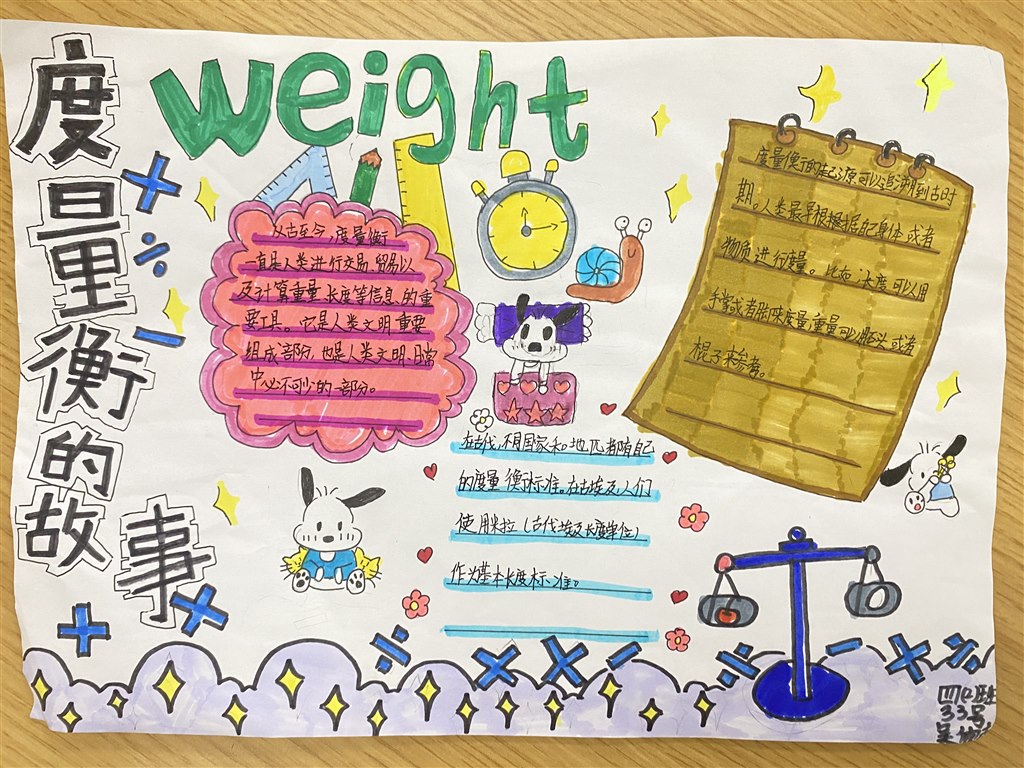 度量衡的故事
weight
从古至今,度量衡一
直是人类进行交易,贸易以
及计算重量,长度等信息的重
要工具。它是人类文明重要
组成部防,也是人类文明日常
中必不可少的一部分。
度量衡的起源可以追溯到古时
期。人类最早根据自己身体或者
物质进行度量。比如:长度可以用
手掌或者张来度量,重量可以用石头或者
棍子来参考。
在古代,不同国家和地区都有自己
的度量衡标准。在古埃及,人们
使用米拉(古代埃及长度单位)
作为基本长度标准。
四(2)班
33号